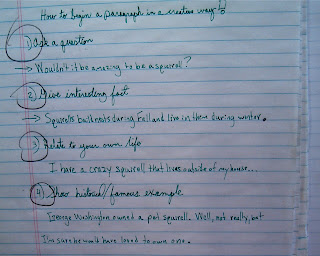 How to begin a paragraph in a creative way?
1) Ask a question
→ Wouldn't it be amazing to be a squirrell?
2) Give interesting fact
→ Squirrels build nests during Fall and live in them during winter.
3) Relate to your own life
I have a crazy squirrell that lives outside of my house...
4) Show historical/famous example
George Washington owned a pet squirrell. Well, not really, but
I'm sure he would have loved to own one.